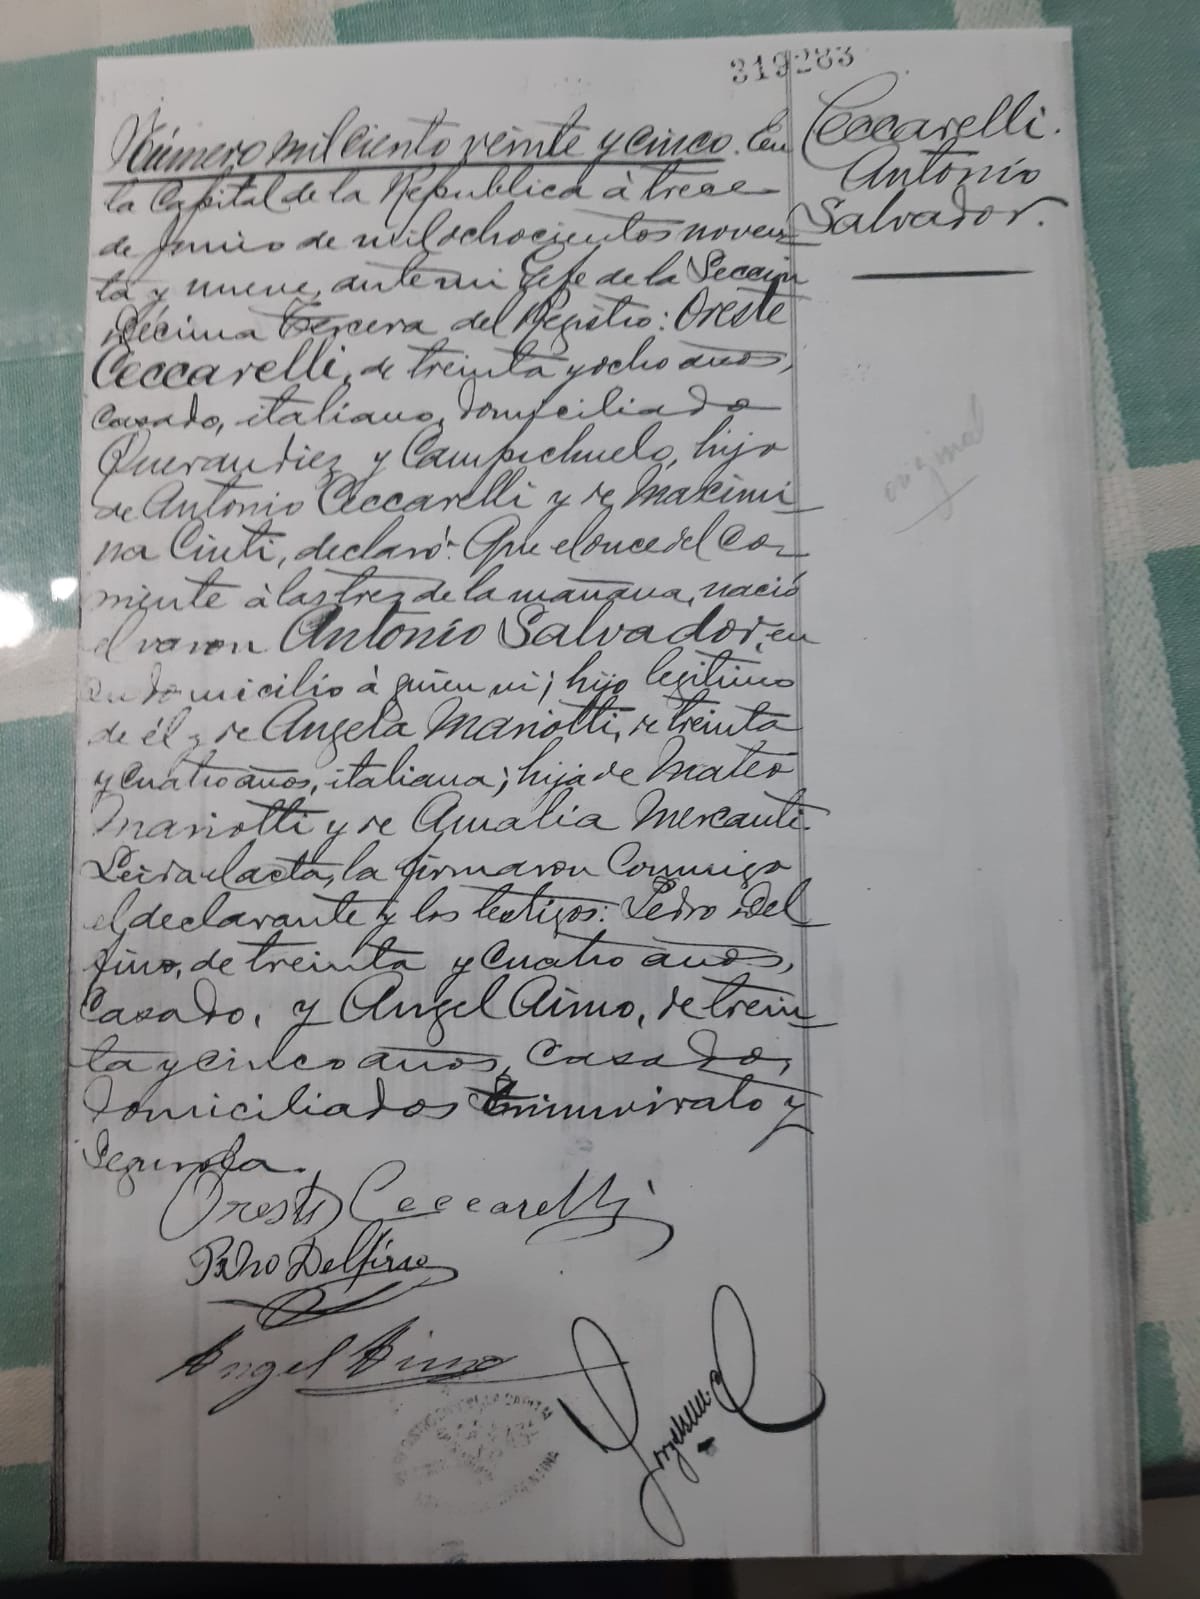 319283
Número mil ciento veinte y cinco. En
la Capital de la Republica à trece
de Junio de mil ochocientos noven
ta y nueve, ante mi Gefe de la Seccion
Décima Tercera del Registro: Oreste
Ceccarelli, de treinta y ocho años,
casado, italiano, domiciliado
Querandiez y Campichuelo, hijo
de Antonio Ceccarelli y de Maximi
na Cinti, declaró: Que el once del co
rriente à las tres de la mañana, nació
el varon Antonio Salvador, en
su domicilio à quien vi; hijo legitimo
de él y de Angela Mariotti, de treinta
y cuatro años, italiana; hija de Mateo
Mariotti y de Amalia Mercanti.
Leida el acta, la firmaron conmigo
el declarante y los testigos: Pedro Del
fino, de treinta y cuatro años,
casado, y Angel Aimo, de trein
ta y cinco años, casado,
domiciliados Triunvirato y
Segurola.
Oreste Ceccarelli
Pedro Delfino
Angel Aimo
Ceccarelli.
Antonio
Salvador.
original